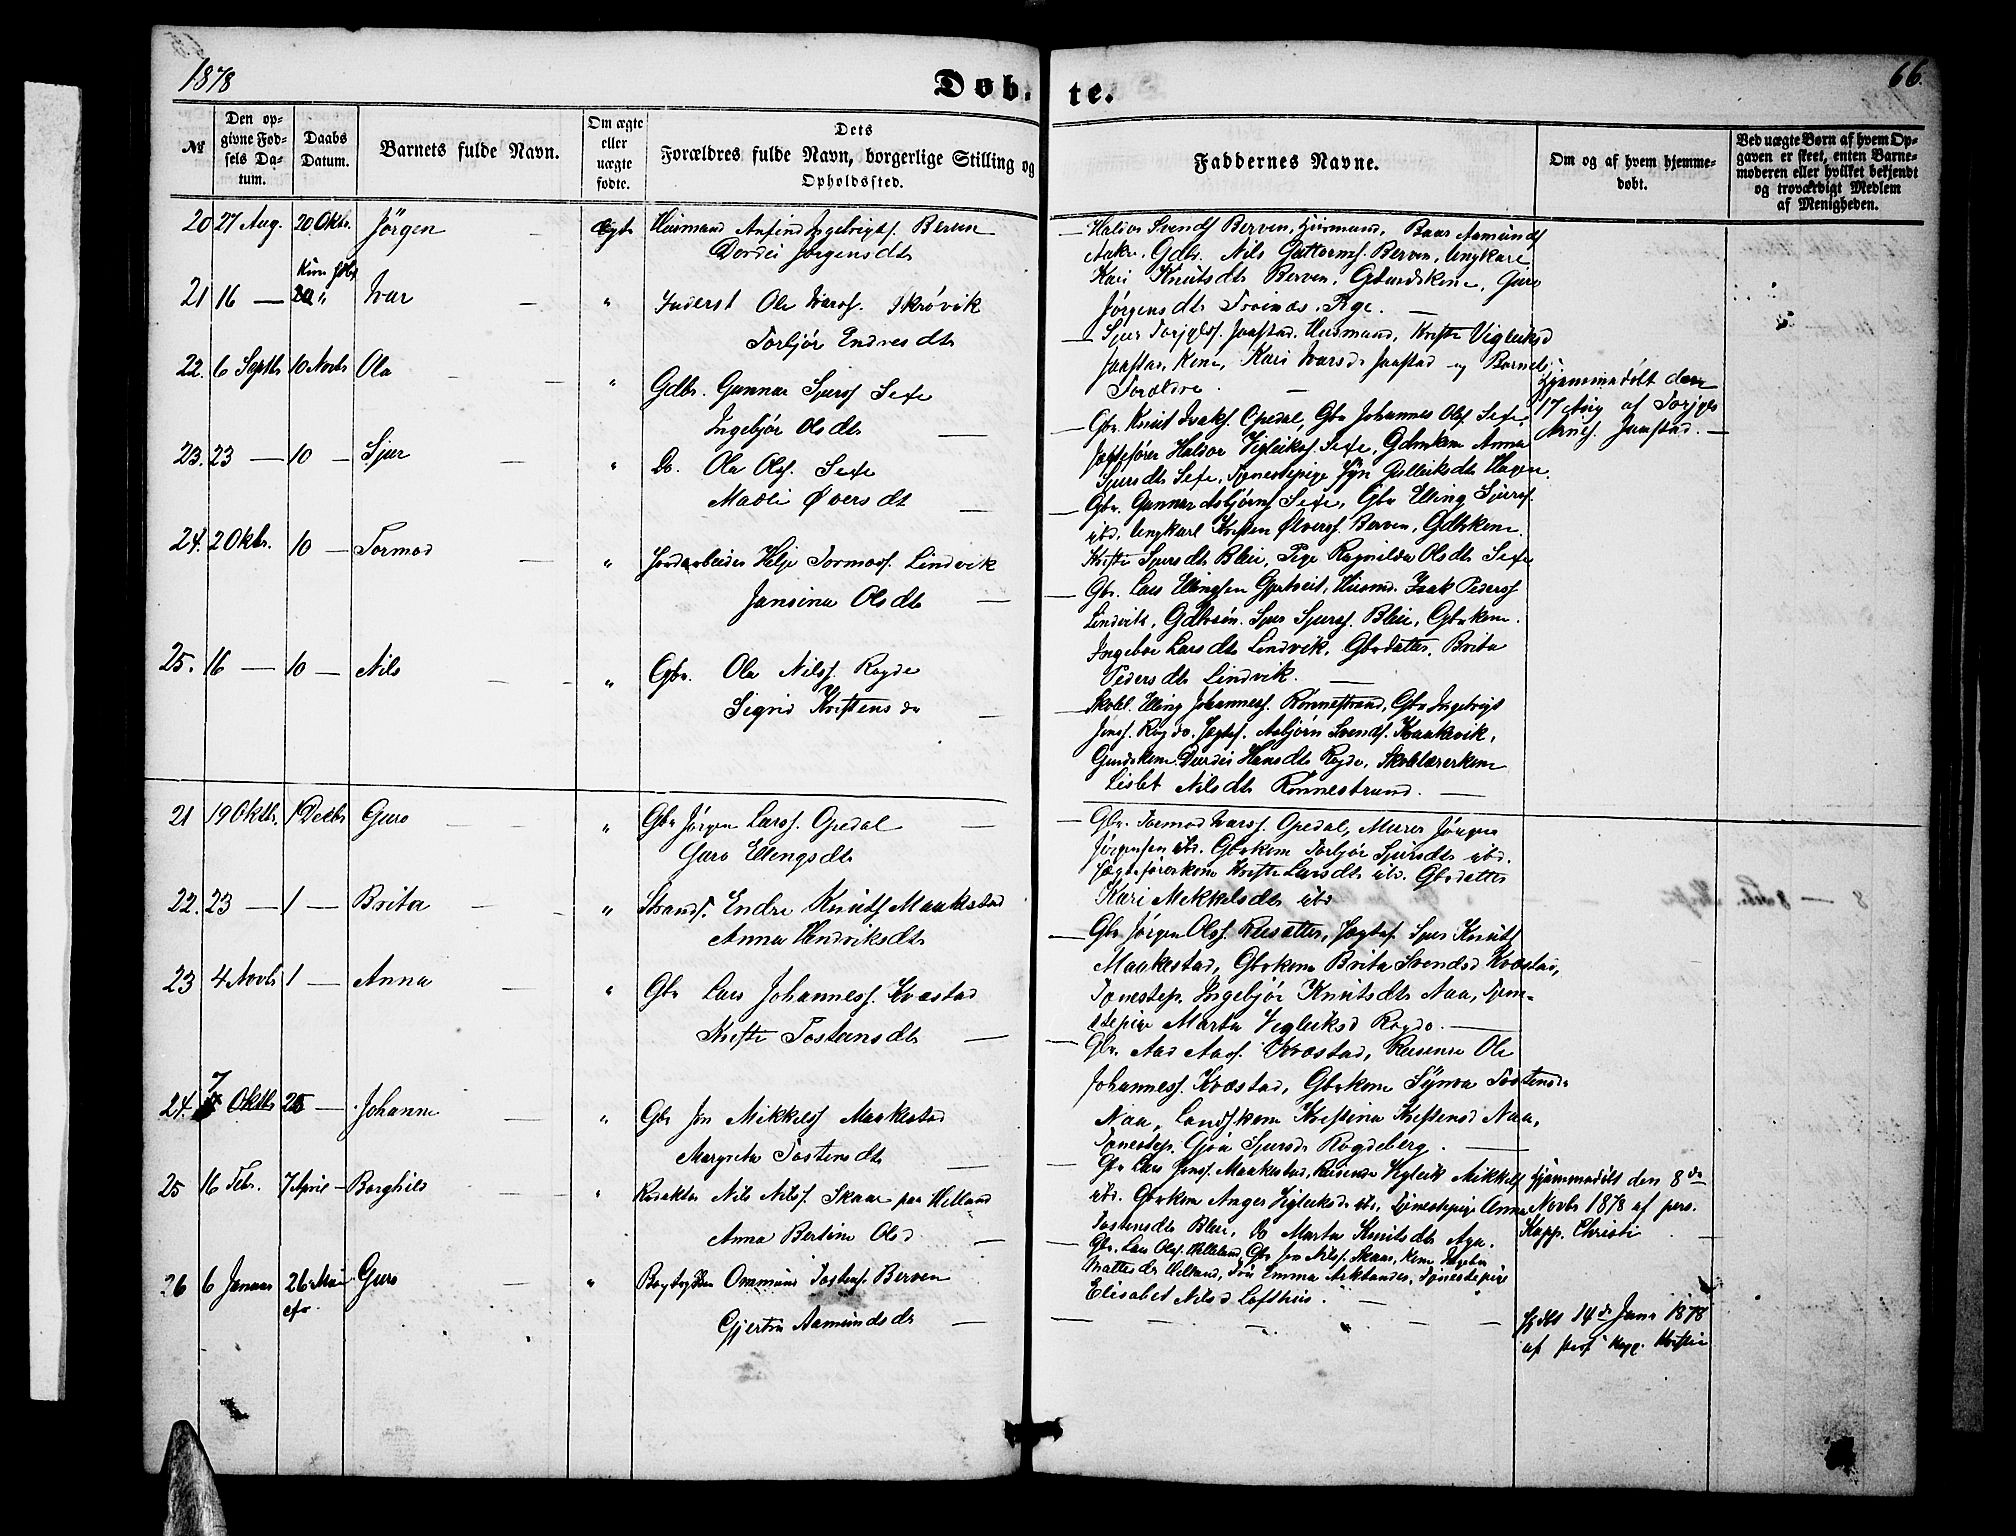 1878
Døb-
te.
66.
№
Den opgivne Fødsels Datum.
Daabs Datum.
Barnets fulde Navn.
Om ægte eller uægte fødte.
Dets Forældres fulde Navn, borgerlige Stilling og Opholdssted.
Faddernes Navne.
Om og af hvem hjemmedøbt.
Ved uægte Børn af hvem Opgaven er skeet, enten Barnemoderen eller hvilket bekjendt og troværdigt Medlem af Menigheden.
20 27 Aug. 20 Oktr. Jörgen — Ægte Huusmand Anfind Ingebrigts. Berven
Dordei Jörgensdtr
Haldor Svends Berven, Huusmand, Baar Aamunds
Aakre, Gdbr. Nils Guttorms. Berven, Ungkarl
Kari Knutsdtr Berven, Gbrudskone, Guro
Jörgensdtr Pige. —
21 16 — 20 " Ivar — " Inderst Ole Ivars. Skrövik
Torbjör Endresdtr
Sjur Torjels. Jaastad, Husmand, Kristi Vigleiksd
Jaastad, Kone, Kari Ivarsd. Jaastad og Barnets
Forældre. —
Hjemmedöbt den
17 Aug af Torjels
Arnes. Jaastad. —
22. 6 Septbr 10 Novbr Ola — — " Gdbr. Gunnar Sjurss Sexe
Ingebjör Olsdtr —
— Gbr. Knut Isaks. Opedal, Gbr Johannes Ols. Sexe,
Jagtefører Haldor Vigleiks. Sexe, Gdbrkone Anna
Sjursdtr Sexe, Tjenestepige Gelleiksdtr Hagen.
23. 23 — 10 — Sjur — " Do. Ola Ols. Sexe
Madli Øversdt —
— Gbr. Gunnar Asbjørns Sexe, Gbr Elling Sjurss.
ibd. Ungkarl Kristen Ølvers. Berven, Gdbrkone
Kristi Sjursdtr Bleie, Pige Ragnilda Olsdtr Sexe
24. 2 Oktr. 10 — Tormod — " Jordarbeider Helje Tormods. Lindvik
Jansina Olsdtr —
— Gbr. Lars Ellingsen Huusmd. Isak Peders
Lindvik, Gdbrsön. Sjur Sjurss. Bleie, Gbrkone.
Ingebor Larsdtr Lindvik, Gbrdatter, Brita
Pedersdtr Lindvik. —
25. 16 — 10 — Nils — — " Gbr. Ola Nilss. Rogde
Sigrid Kristensdr —
— Skolel. Elling Johanness. Rönnestrand, Gbr Ingebrigt
Jons. Rogde. Jagtef. Asbjørn Svends. Kraakevik,
Gaardskone Durdei Hansdtr Rogde, Skolelærerkone
Lisbet Nilsdtr Rönnestrand. —
21 19 Oktbr. 1 Decbr Guro — — " Gbr Jörgen Larss. Opedal —
Guro Ellingsdtr
— Gbr. Tormod Ivarss. Opedal, Murer Jörgen
Jörgensen ibd. Gbrkone Torbjör Sjursdtr ibd.
Jagtefører kone Kristi Larsdtr ibd. Gbrdatter
Kari Mikkelsdtr ibd
22. 23 — 1 — Brita — — " Strands. Endre Knuts Maakestad
Anna Hendriksdtr
— Gbr Jörgen Ols. Reisæter, Jagtef. Sjur Knuts
Maakestad, Gbrkone Brita Svendsd Kvæstad,
Tjenestep. Ingebjör Knutsdtr Naa, Tjene-
stepige Marta Vigleiksd Rogde. —
23 4 Novbr 1 — Anna " Gbr Lars Johanness. Kvæstad
Kristi Tostensdtr —
— Gbr. Aad Aads. Kvæstad, Reisende Ole
Johanness. Kvæstad, Gbrkone Synva Tostensdr
Naa, Landskone Kristina Kristensd Naa,
Tjenestep. Gjöa Sjursdr Rogdeberg. —
24. 7 Oktbr 25 — Johanne — " Gbr Jon Mikkels Maakestad
Margreta Tostensdtr —
— Gbr Lars Jons. Maakestad, Reisende Vigleik Mikkels
ibd. Gbrkone Anger Vigleiksdr ibd, Tjenestepige Anna
Tostensdtr Bleie, Do Marta Knutsdtr Aga.
Hjemmedöbt den 8de
Novbr 1878 af pers.
Kapp. Christi
25 16 Febr. 7 April — Borghild — — " Redaktör Nils Nilss. Skaar paa Helland
Anna Bertine Olsd —
Gbr. Lars Ols. Helleland, Gbr Jon Nilss. Skaar, Kone
Helland, Frk Emma Tjenestepige
Elisabet Nilsd Lofthus. —
26 6 Januar 26 Mai Guro — " Ommund Tostens. Berven
Gjertru Aamundsdr —
Hjdbt 14de Janr 1878
af pers Kapp. Kristie